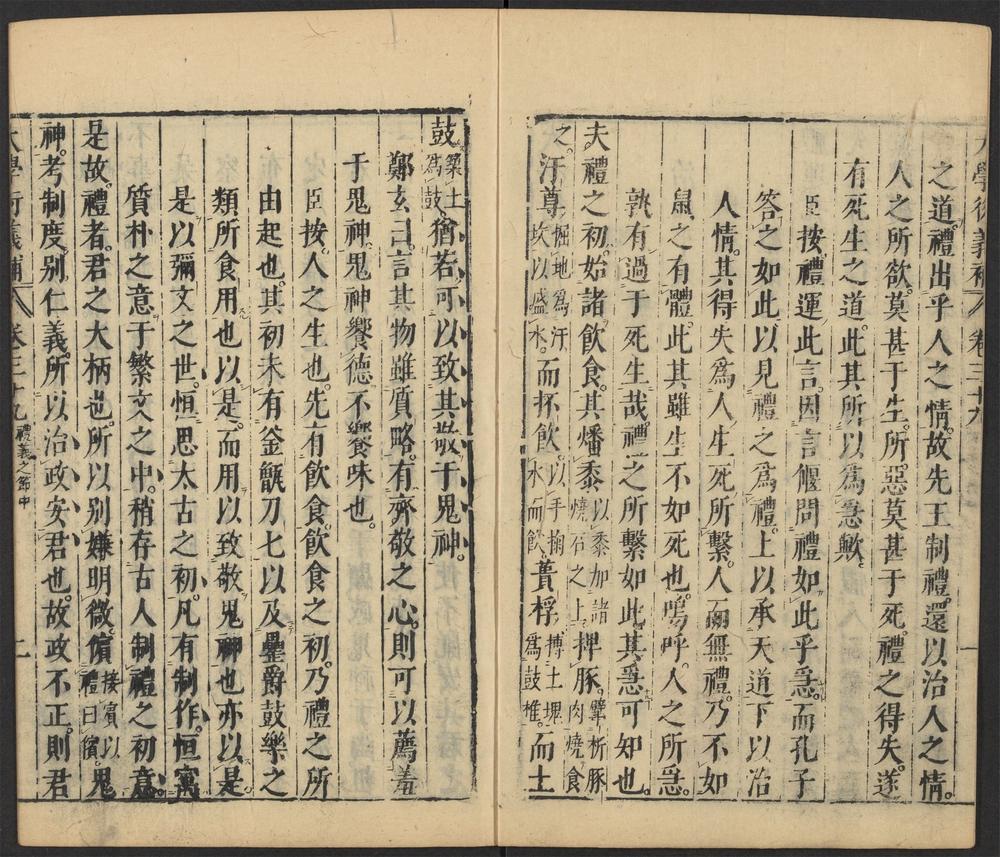 大學衍義補 卷三十九
之道禮出乎人之情故先王制禮還以治人之情
人之所欲莫甚于生所惡莫甚于死禮之得失遂
有死生之道此其所以為急歟
臣按禮運此言因言偃問禮如此乎急而孔子
答之如此以見禮之為禮上以承天道下以治
人情其得失為人生死所繫人而無禮乃不如
鼠之有體此其雖生不如死也嗚呼人之所急
孰有過于死生哉禮之所繫如此其急可知也
夫禮之初始諸飲食其燔黍以黍加諸燒石之上捭豚擘析豚肉燒食
之汙尊掘地為汙坎以盛水而抔飲以手掬水而飲蕢桴摶土塊為鼓椎而土
鼓築土為鼓猶若可以致其敬于鬼神
鄭玄曰言其物雖質略有齊敬之心則可以薦羞
于鬼神鬼神饗德不饗味也
臣按人之生也先有飲食飲食之初乃禮之所
由起也其初未有釜甑刀匕以及罍爵鼓樂之
類所食用也以是而用以致敬鬼神也亦以是
是以彌文之世恒思太古之初凡有制作恒寓
質朴之意于繁文之中稍存古人制禮之初意
是故禮者君之大柄也所以別嫌明微儐接賓以禮曰儐鬼
神考制度別仁義所以治政安君也故政不正則君
大學衍義補 卷三十九 禮義之節中 二